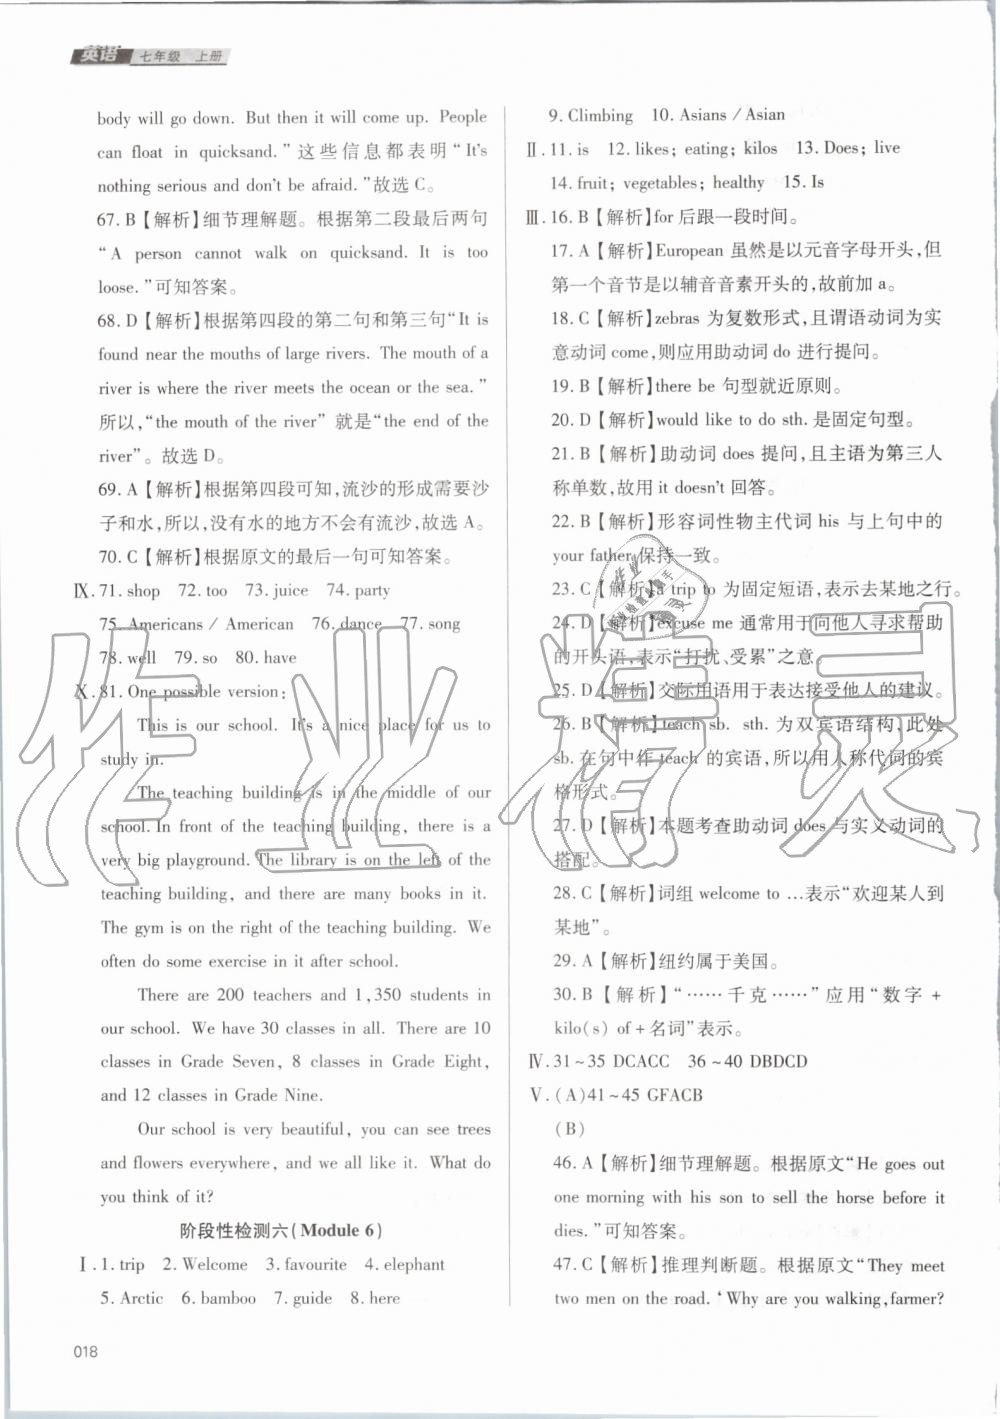 英语 七年级 上册
body will go down. But then it will come up. People
can float in quicksand.”这些信息都表明“It's
nothing serious and don't be afraid.”故选 C。
67. B【解析】细节理解题。根据第二段最后两句
“A person cannot walk on quicksand. It is too
loose.”可知答案。
68. D【解析】根据第四段的第二句和第三句“It is
found near the mouths of large rivers. The mouth of a
river is where the river meets the ocean or the sea.”
所以,“the mouth of the river” 就是“the end of the
river”。故选 D。
69. A【解析】根据第四段可知,流沙的形成需要沙
子和水,所以,没有水的地方不会有流沙,故选 A。
70. C【解析】根据原文的最后一句可知答案。
Ⅸ. 71. shop 72. too 73. juice 74. party
75. Americans / American 76. dance 77. song
78. well 79. so 80. have
Ⅹ. 81. One possible version:
This is our school. It's a nice place for us to
study in.
The teaching building is in the middle of our
school. In front of the teaching building, there is a
very big playground. The library is on the left of the
teaching building, and there are many books in it.
The gym is on the right of the teaching building. We
often do some exercise in it after school.
There are 200 teachers and 1,350 students in
our school. We have 30 classes in all. There are 10
classes in Grade Seven, 8 classes in Grade Eight,
and 12 classes in Grade Nine.
Our school is very beautiful, you can see trees
and flowers everywhere, and we all like it. What do
you think of it?
阶段性检测六(Module 6)
Ⅰ. 1. trip 2. Welcome 3. favourite 4. elephant
5. Arctic 6. bamboo 7. guide 8. here
9. Climbing 10. Asians / Asian
Ⅱ. 11. is 12. likes; eating; kilos 13. Does; live
14. fruit; vegetables; healthy 15. Is
Ⅲ. 16. B【解析】for 后跟一段时间。
17. A【解析】European 虽然是以元音字母开头,但
第一个音节是以辅音音素开头的,故前加 a。
18. C【解析】zebras 为复数形式,且谓语动词为实
意动词 come,则应用助动词 do 进行提问。
19. B【解析】there be 句型就近原则。
20. D【解析】would like to do sth. 是固定句型。
21. B【解析】助动词 does 提问,且主语为第三人
称单数,故用 it doesn't 回答。
22. B【解析】形容词性物主代词 his 与上句中的
your father 保持一致。
23. C【解析】a trip to 为固定短语,表示去某地之行。
24. D【解析】excuse me 通常用于向他人寻求帮助
的开头语,表示“打扰、受累”之意。
25. D【解析】交际用语用于表达接受他人的建议。
26. B【解析】teach sb. sth. 为双宾语结构,此处
sb. 在句中作 teach 的宾语,所以用人称代词的宾
格形式。
27. D【解析】本题考查助动词 does 与实义动词的
搭配。
28. C【解析】词组 welcome to …表示“欢迎某人到
某地”。
29. A【解析】纽约属于美国。
30. B【解析】“……千克……”应用“数字 +
kilo(s) of + 名词”表示。
Ⅳ. 31~35 DCACC 36~40 DBDCD
Ⅴ. (A)41~45 GFACB
(B)
46. A【解析】细节理解题。根据原文“He goes out
one morning with his son to sell the horse before it
dies.”可知答案。
47. C【解析】推理判断题。根据原文“They meet
two men on the road. ‘Why are you walking, farmer?
018
作业精灵